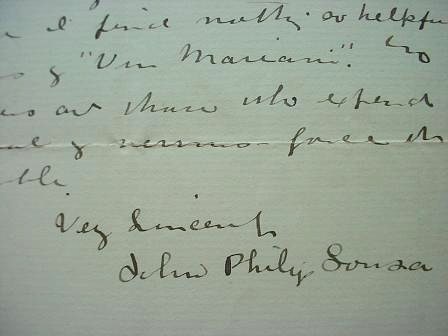 I find nothing so helpful
"Vin Mariani". To
as those who expend
nervous force
Very Sincerely
John Philip Sousa